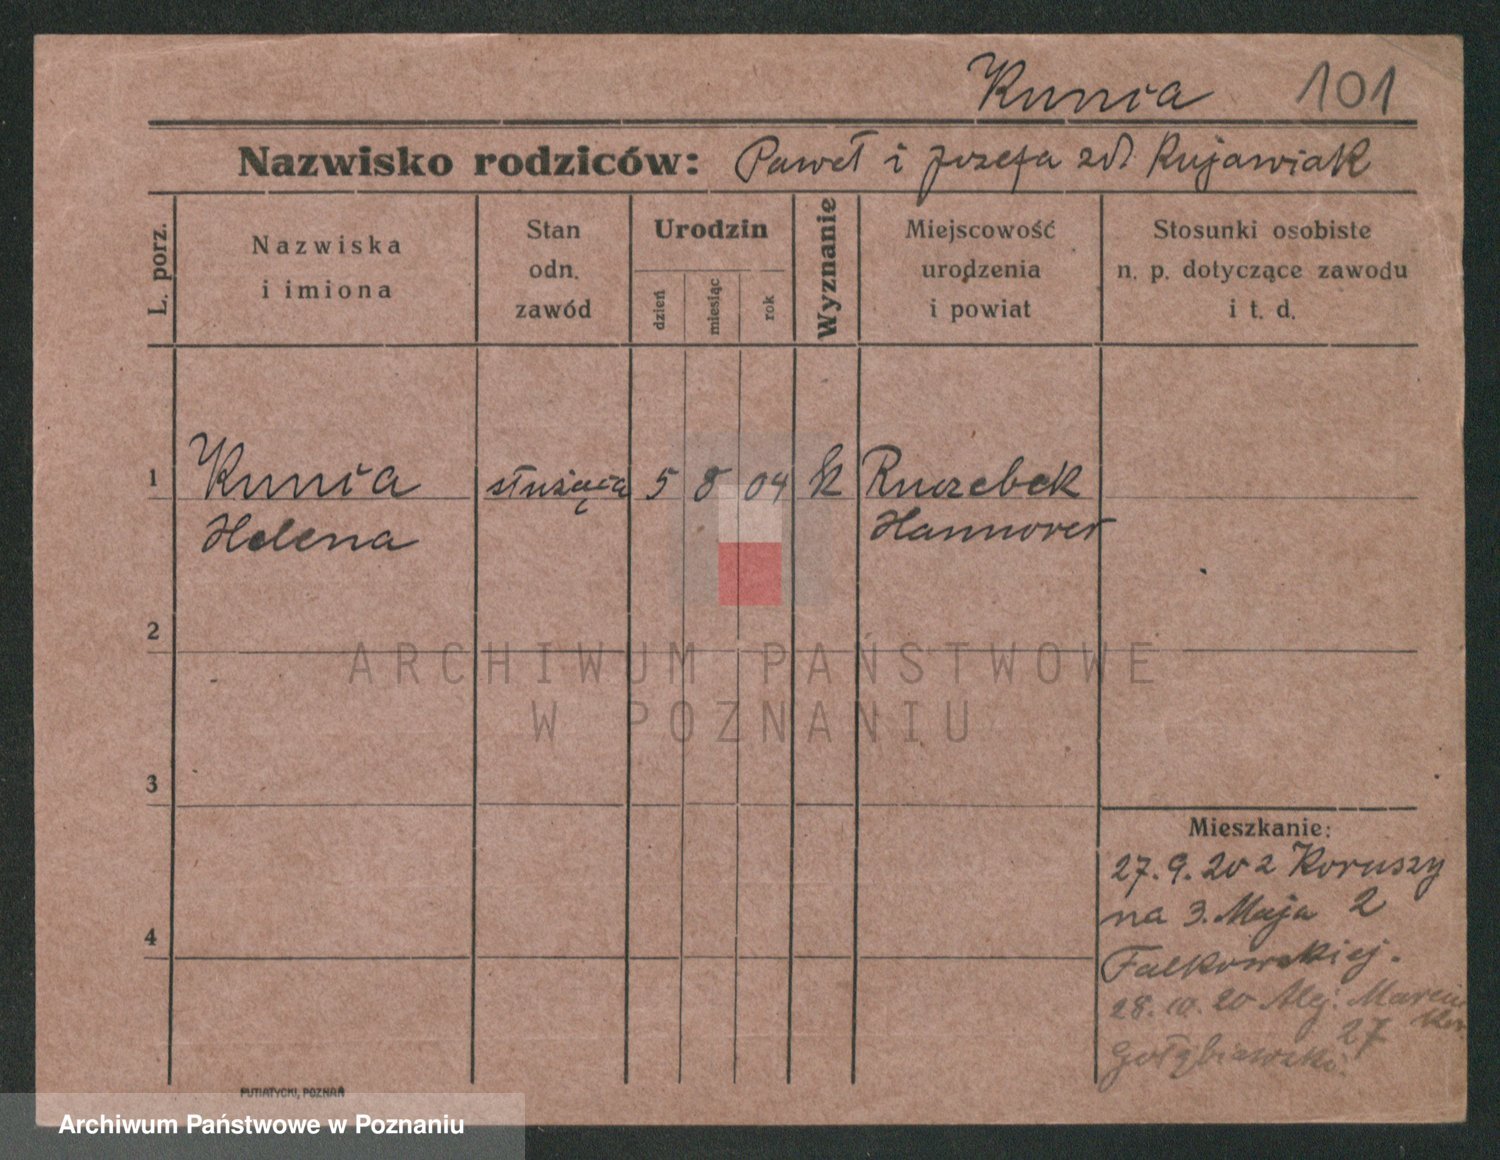 Kunia 101
Nazwisko rodziców: Paweł i Józefa zd. Kujawiak
L. porz.
Nazwiska
i imiona
Stan
odn.
zawód
Urodzin
dzień
miesiąc
rok
Wyznanie
Miejscowość
urodzenia
i powiat
Stosunki osobiste
n. p. dotyczące zawodu
i t. d.
1 Kunia służąca 5 8 04 k Ruczebek
Helena Hannover
2
3
4
Mieszkanie:
27.9.20 z Koruszy
na 3. Maja 2
Falkowskiej.
28. 20 Alej. Marcin
27
PUTIATYCKI, POZNAŃ
ARCHIWUM PAŃSTWOWE
W POZNANIU
Archiwum Państwowe w Poznaniu